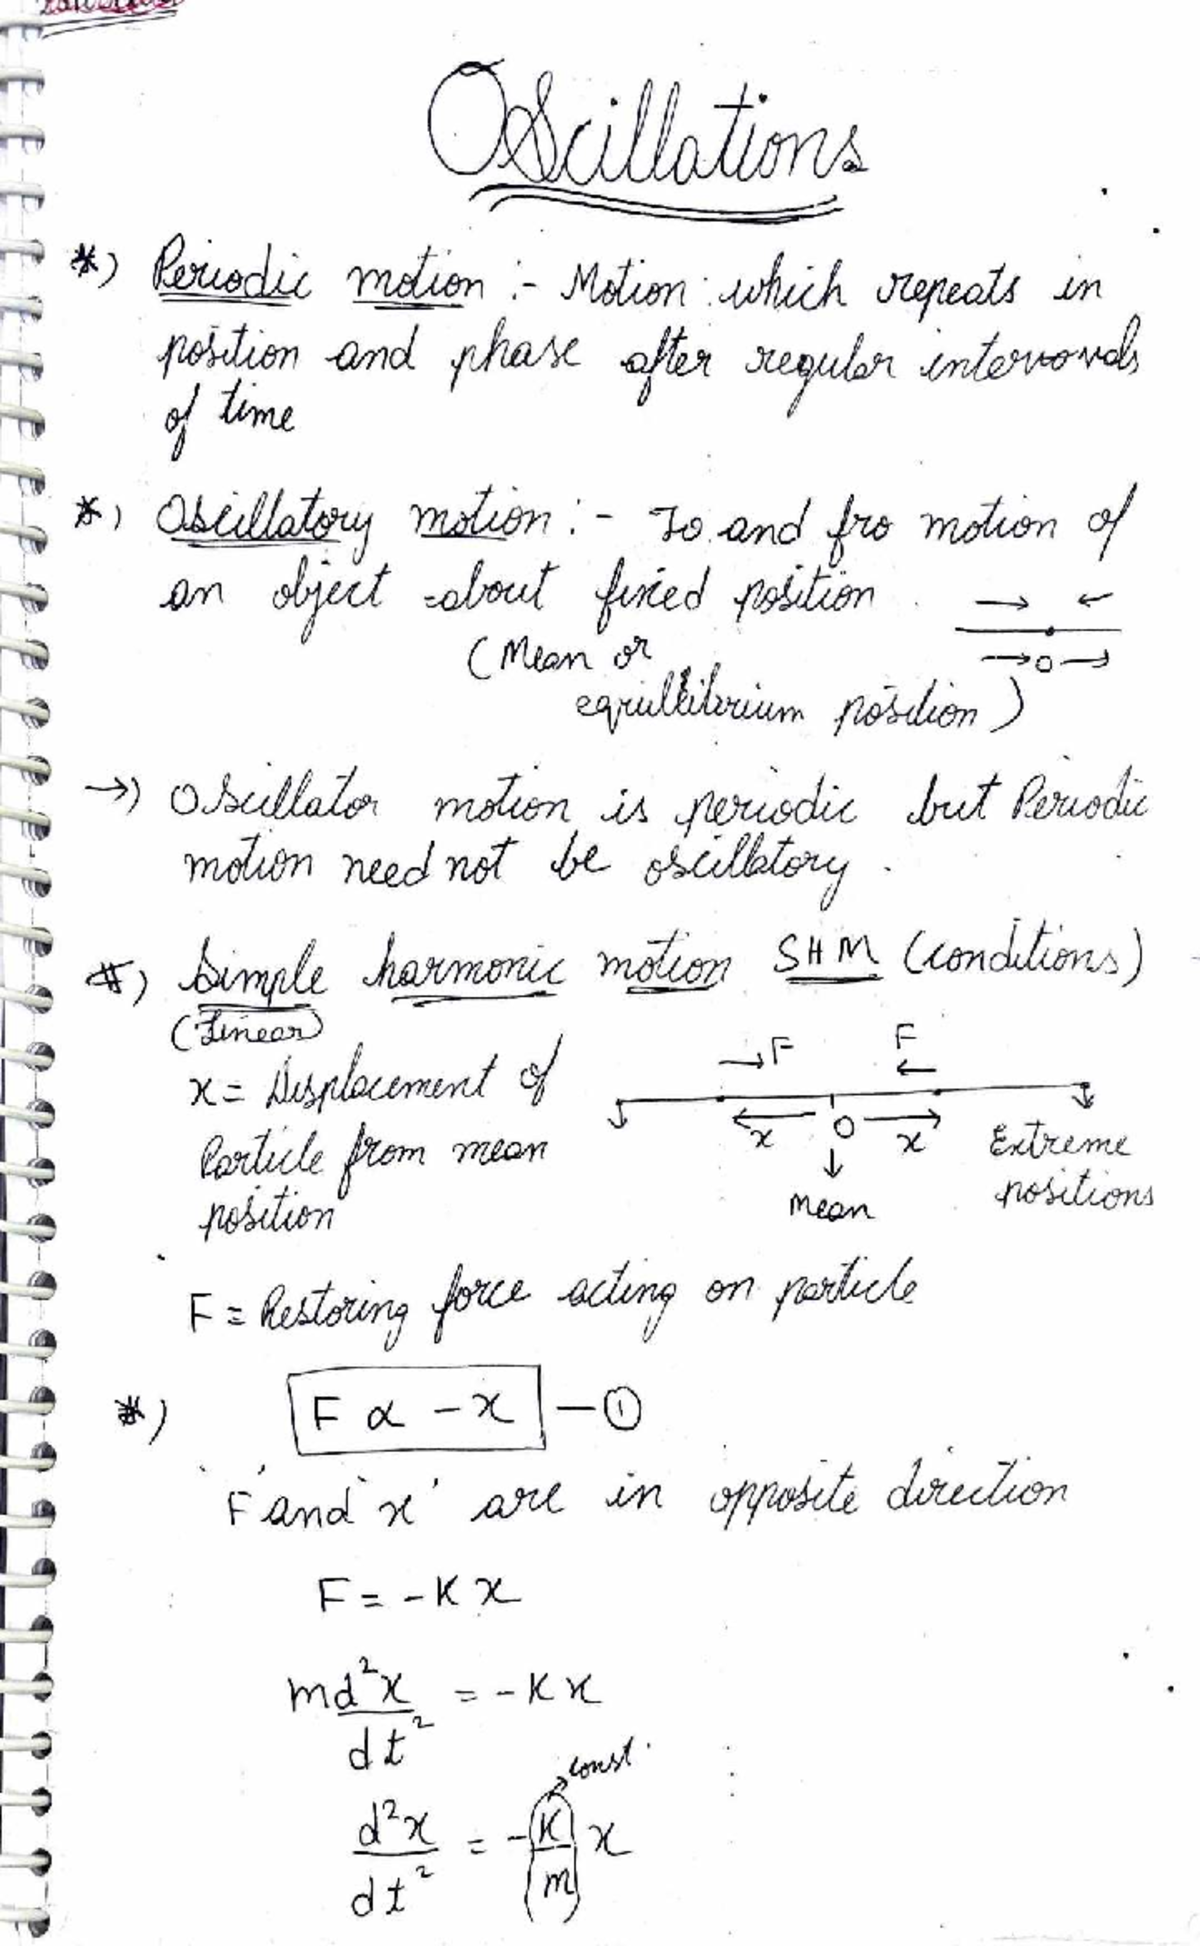 Oscillations
*) Periodic motion :- Motion which repeats in
position and phase after regular intervovals
of time
*) Oscillatory motion :- To and fro motion of
an object about fixed position
(Mean or
equillibrium position)
→ → ← 
→ O →
→) Oscillator motion is periodic but Periodic
motion need not be oscillatory.
*) Simple harmonic motion SHM (conditions)
(Linear)
x = Displacement of
Particle from mean
position
→F F ←
← x O → x
↓ Mean
Extreme
positions
F = Restoring force acting on particle
*) F α -x — ①
'F' and 'x' are in opposite direction
F = -Kx
md²x/dt² = -Kx
const.
d²x/dt² = -(K/m) x